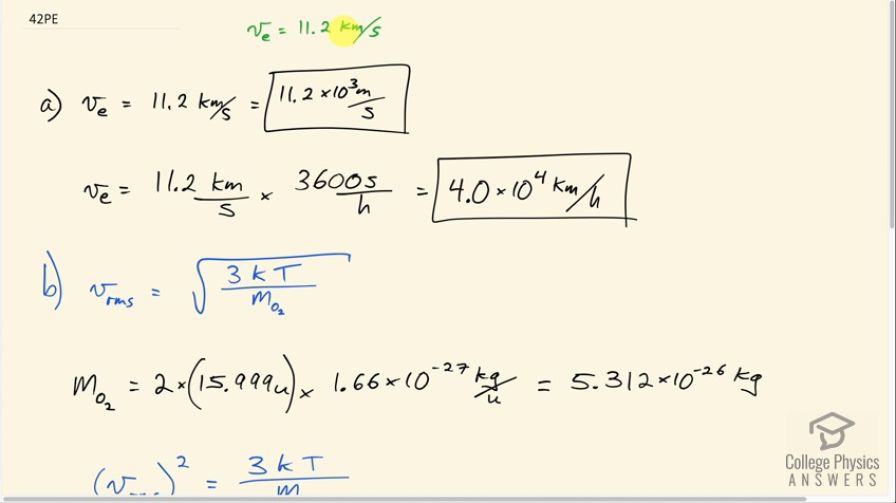 42PE
vₑ = 11.2 km/s
a) vₑ = 11.2 km/s = 11.2 × 10³ m/s
vₑ = 11.2 km/s × 3600s/h = 4.0 × 10⁴ km/h
b) v_rms = √(3kT/m_O₂)
m_O₂ = 2 × (15.999u) × 1.66 × 10⁻²⁷ kg/u = 5.312 × 10⁻²⁶ kg
(v_rms)² = 3kT/m
College Physics
ANSWERS